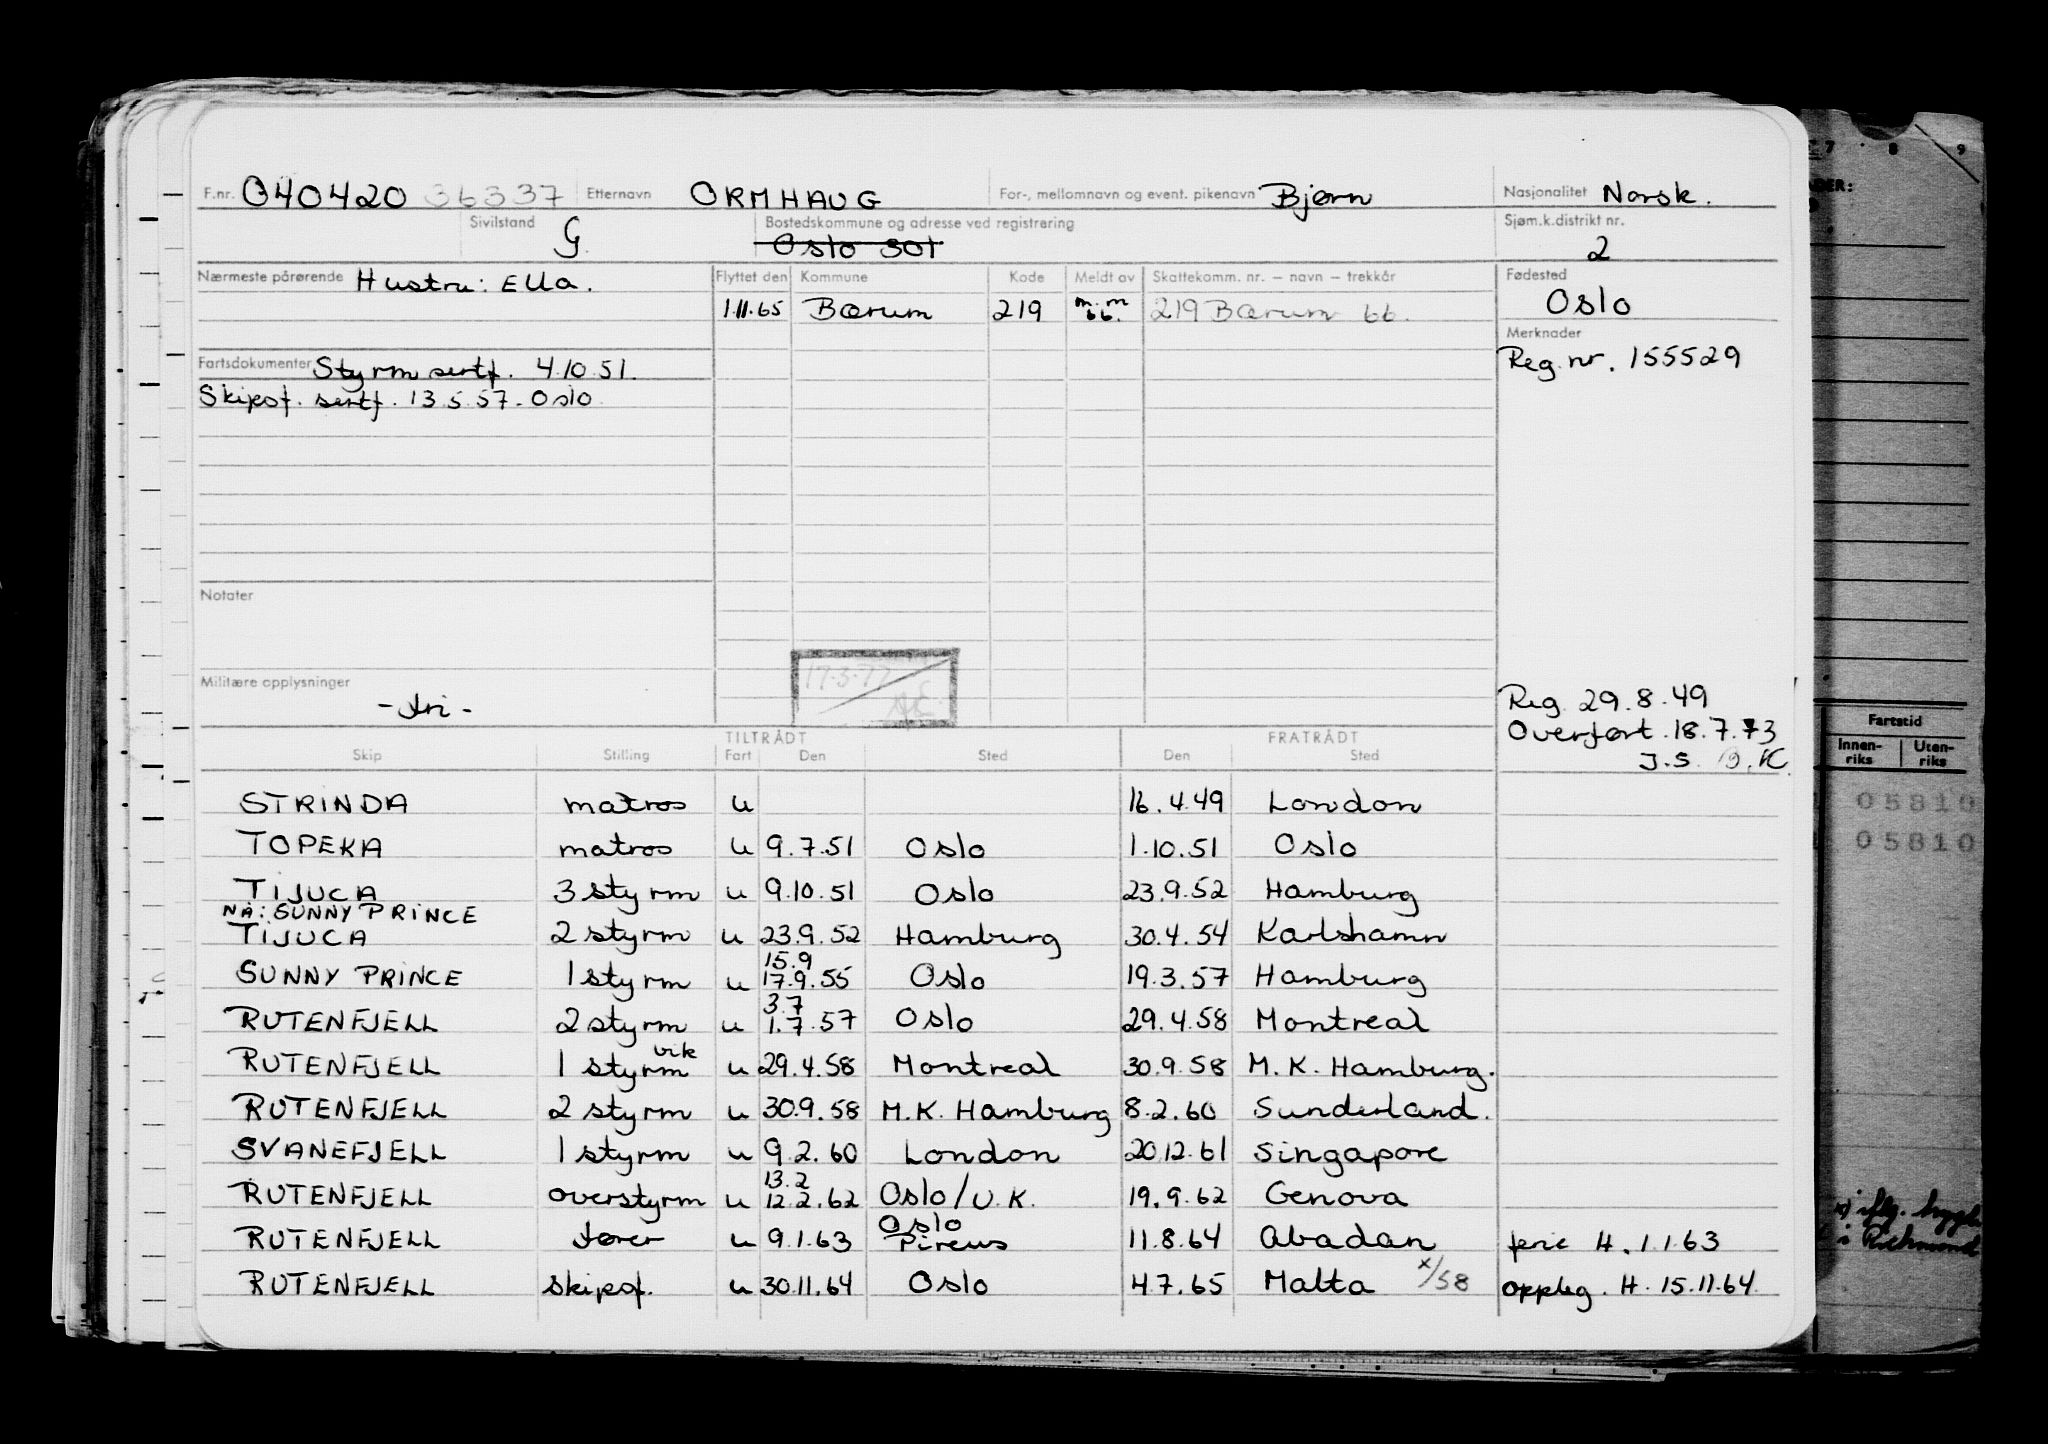 F.nr. 040420 36337 Etternavn ORMHAUG For-, mellomnavn og event. pikenavn Bjørn Nasjonalitet Norsk.
Sivilstand G. Bostedskommune og adresse ved registrering Oslo 301 Sjøm.k.distrikt nr. 2
Nærmeste pårørende Hustru: Ella. Flyttet den Kommune Kode Meldt av Skattekomm. nr. – navn – trekkår Fødested
1.11.65 Bærum 219 m.m 66. 219 Bærum 66. Oslo
Merknader
Fartsdokumenter Styrm sertf. 4.10.51. Reg. nr. 155529
Skipsf. sertf. 13.5.57. Oslo
Notater
17.3.77
Militære opplysninger
- fri - Reg. 29.8.49
Overført. 18.7.73
J.S.
TILTRÅDT FRATRÅDT
Skip Stilling Fart Den Sted Den Sted
STRINDA matros u 16.4.49 London
TOPEKA matros u 9.7.51 Oslo 1.10.51 Oslo
TIJUCA 3 styrm u 9.10.51 Oslo 23.9.52 Hamburg
NÅ: SUNNY PRINCE
TIJUCA 2 styrm u 23.9.52 Hamburg 30.4.54 Karlshamn
15.9
SUNNY PRINCE 1 styrm u 17.9.55 Oslo 19.3.57 Hamburg
3.7
RUTENFJELL 2 styrm u 1.7.57 Oslo 29.4.58 Montreal
vik
RUTENFJELL 1 styrm u 29.4.58 Montreal 30.9.58 M.K. Hamburg.
RUTENFJELL 2 styrm u 30.9.58 M.K. Hamburg 8.2.60 Sunderland.
SVANEFJELL 1 styrm u 9.2.60 London 20.12.61 Singapore
13.2
RUTENFJELL overstyrm u 12.2.62 Oslo/U.K. 19.9.62 Genova
Oslo
RUTENFJELL fører u 9.1.63 Pireus 11.8.64 Abadan ferie H. 1.1.63
RUTENFJELL skipsf. u 30.11.64 Oslo 4.7.65 Malta x/58 oppleg. H. 15.11.64
7 8 9
Fartstid
Innen-riks Uten-riks
05810
05810
i Richmond